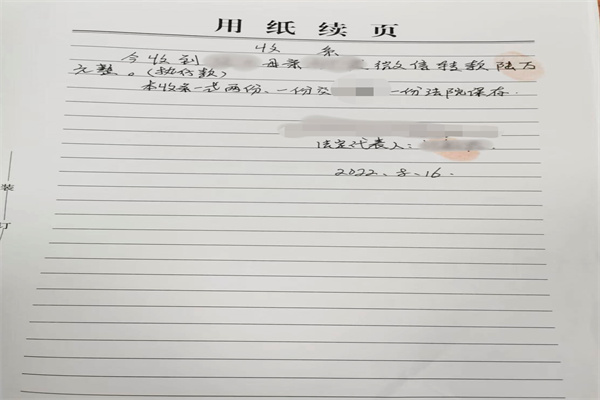 用纸续页
收条
今收到 母亲 微信转款陆万
元整。(执行款)
本收条一式两份、一份交 一份法院保存.
法定代表人:
2022.8.16.
装
订